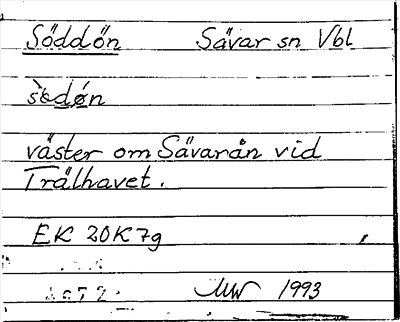 Söddön Sävar sn Vbl
väster om Sävarån vid
Trälhavet.
EK 20K7g
MW 1993